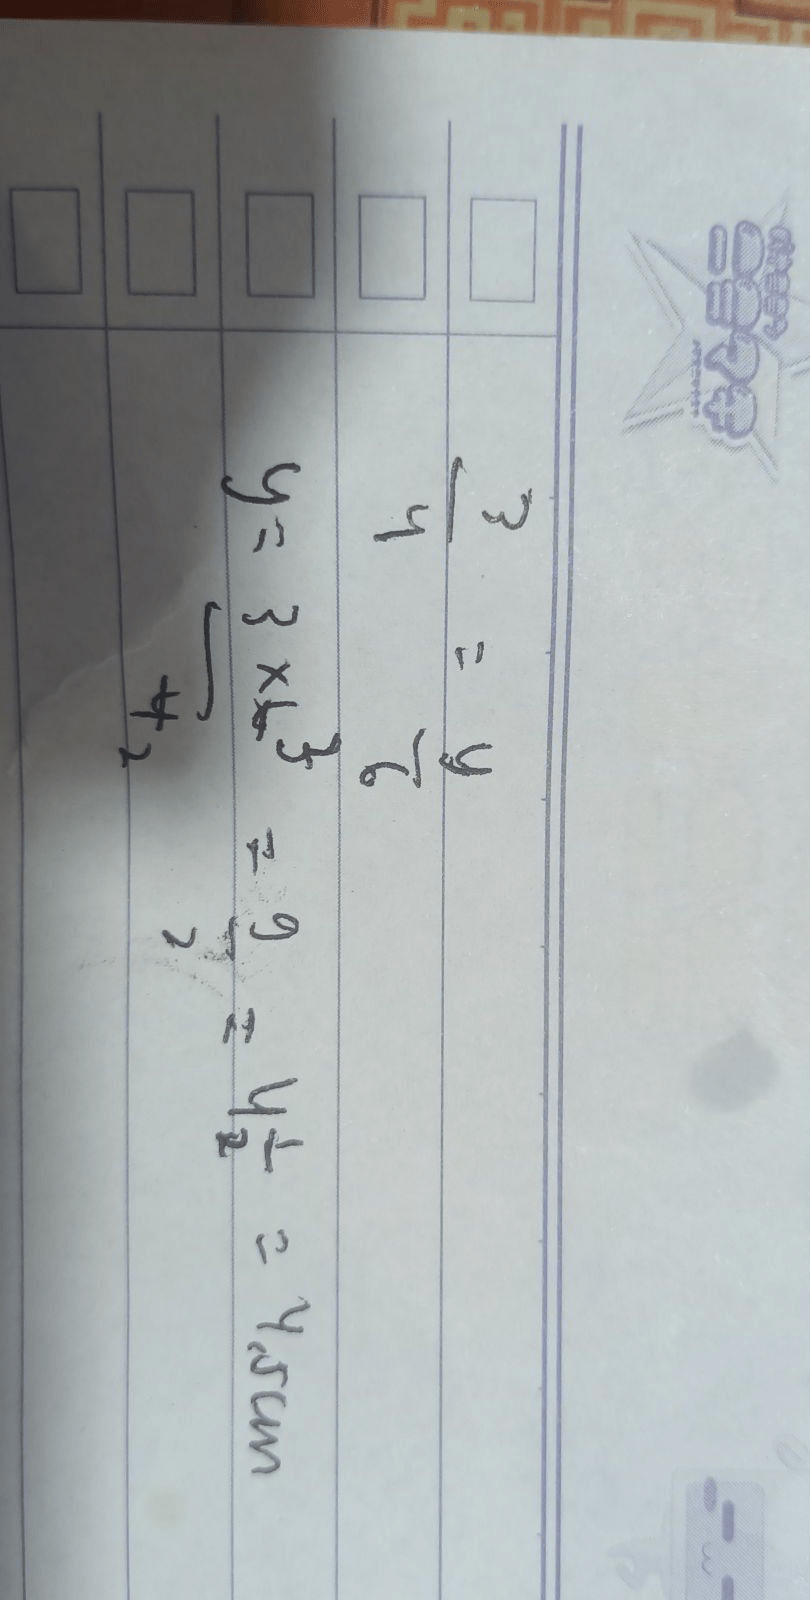 3/4 = y/6
y = 3 × 6 3 / 4 2 = 9/2 = 4 1/2 = 4.5cm